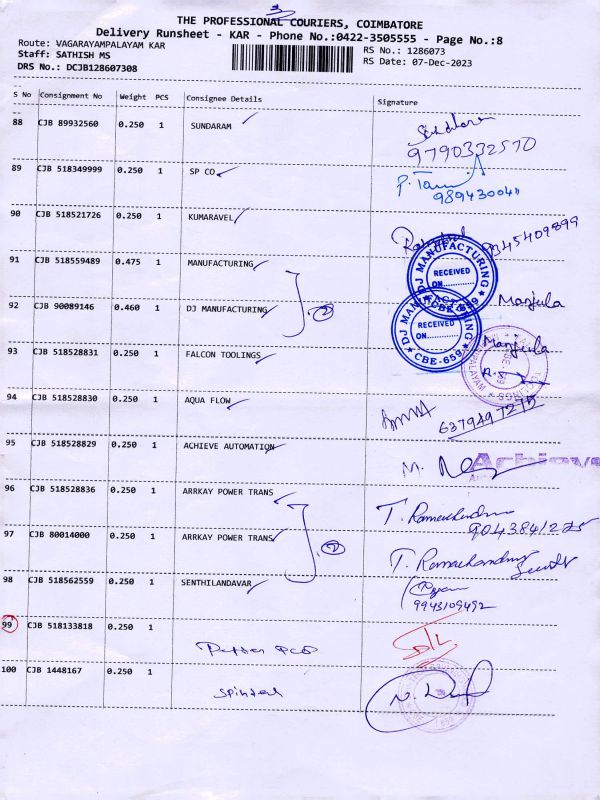 THE PROFESSIONAL COURIERS, COIMBATORE
Delivery Runsheet - KAR - Phone No.:0422-3505555 - Page No.:8
Route: VAGARAYAMPALAYAM KAR
RS No.: 1286073
Staff: SATHISH MS
RS Date: 07-Dec-2023
DRS No.: DCJB128607308
S No Consignment No Weight PCS Consignee Details Signature
88 CJB 89932560 0.250 1 SUNDARAM
9790332570
89 CJB 518349999 0.250 1 SP CO
9894300411
90 CJB 518521726 0.250 1 KUMARAVEL
9345409899
91 CJB 518559489 0.475 1 MANUFACTURING
DJ MANUFACTURING
RECEIVED
ON............
CBE-659
92 CJB 90089146 0.460 1 DJ MANUFACTURING 2 Manjula
DJ MANUFACTURING
RECEIVED
ON............
CBE-659
93 CJB 518528831 0.250 1 FALCON TOOLINGS Manjula
94 CJB 518528830 0.250 1 AQUA FLOW
6379497275
95 CJB 518528829 0.250 1 ACHIEVE AUTOMATION M.
Achieve
96 CJB 518528836 0.250 1 ARRKAY POWER TRANS T. Ramachandran
9043841225
97 CJB 80014000 0.250 1 ARRKAY POWER TRANS 2 T. Ramachandran
98 CJB 518562559 0.250 1 SENTHILANDAVAR
9943109492
99 CJB 518133818 0.250 1
100 CJB 1448167 0.250 1 Spintech